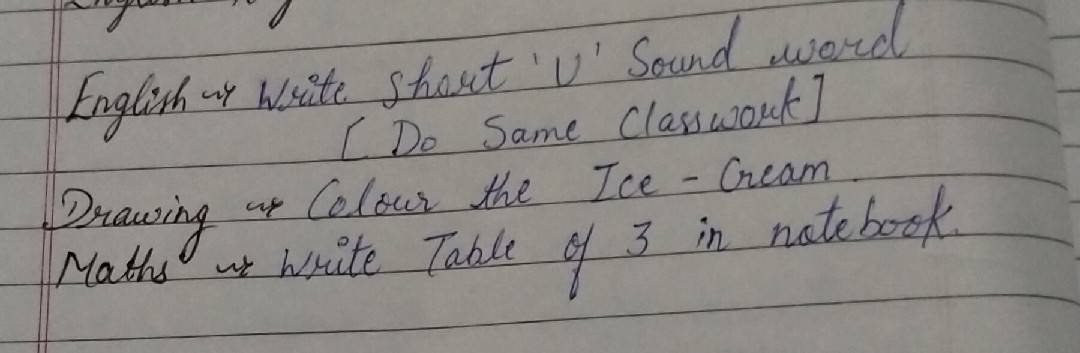 English → Write short 'U' Sound word
[ Do Same Classwork]
Drawing → Colour the Ice - Cream.
Maths → Write Table of 3 in notebook.